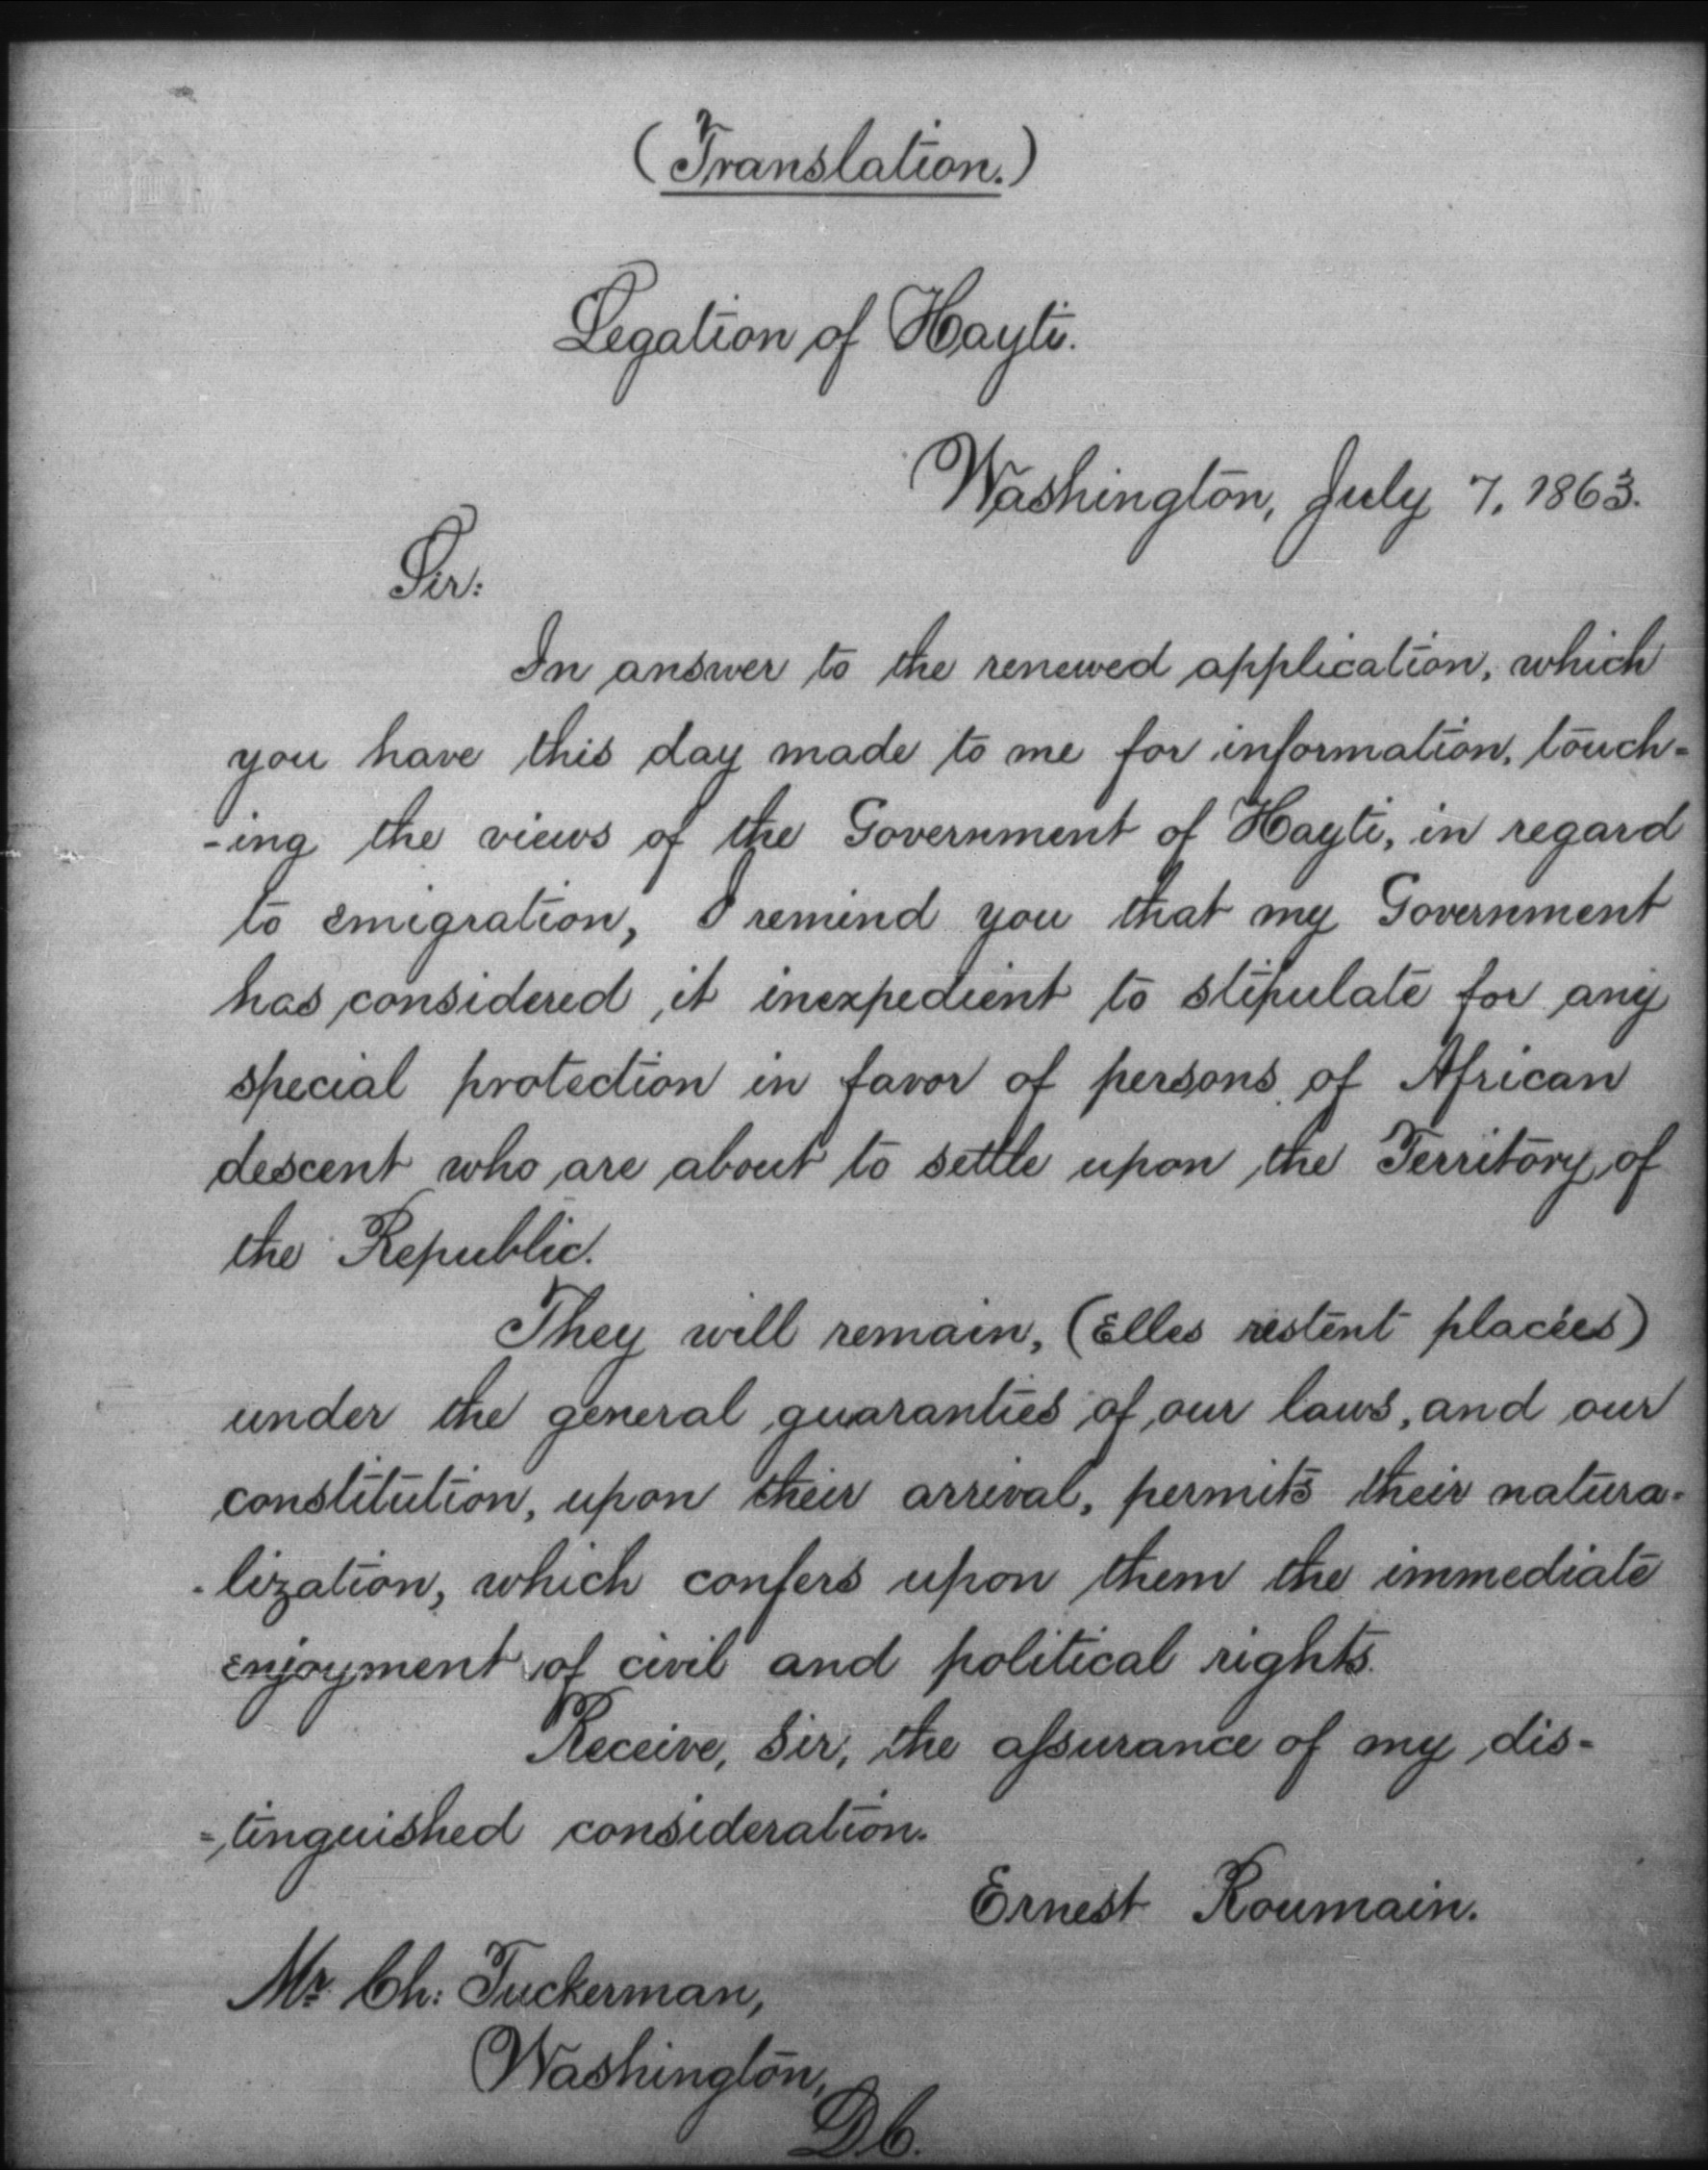 (Translation.)
Legation of Hayti.
Washington, July 7, 1863.
Sir:
In answer to the renewed application, which
you have this day made to me for information, touch-
-ing the views of the Government of Hayti, in regard
to emigration, I remind you that my Government
has considered it inexpedient to stipulate for any
special protection in favor of persons of African
descent who are about to settle upon the Territory of
the Republic.
They will remain, (Elles restent placées)
under the general guaranties of our laws, and our
constitution, upon their arrival, permits their natura-
-lization, which confers upon them the immediate
enjoyment of civil and political rights.
Receive, Sir, the assurance of my dis-
-tinguished consideration.
Ernest Roumain.
Mr. Ch: Tuckerman,
Washington,
DC.